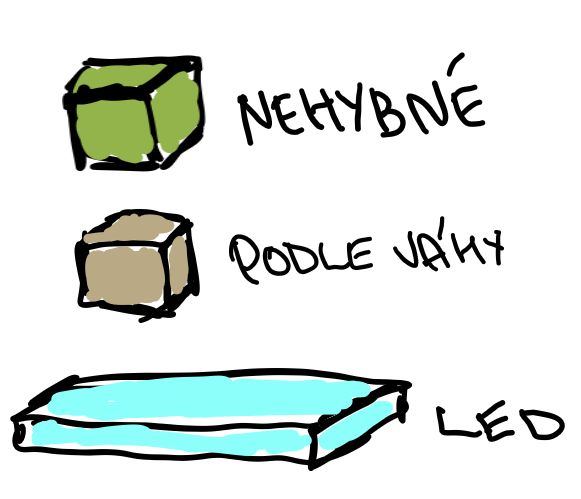 NEHYBNÉ
PODLE VÁHY
LED